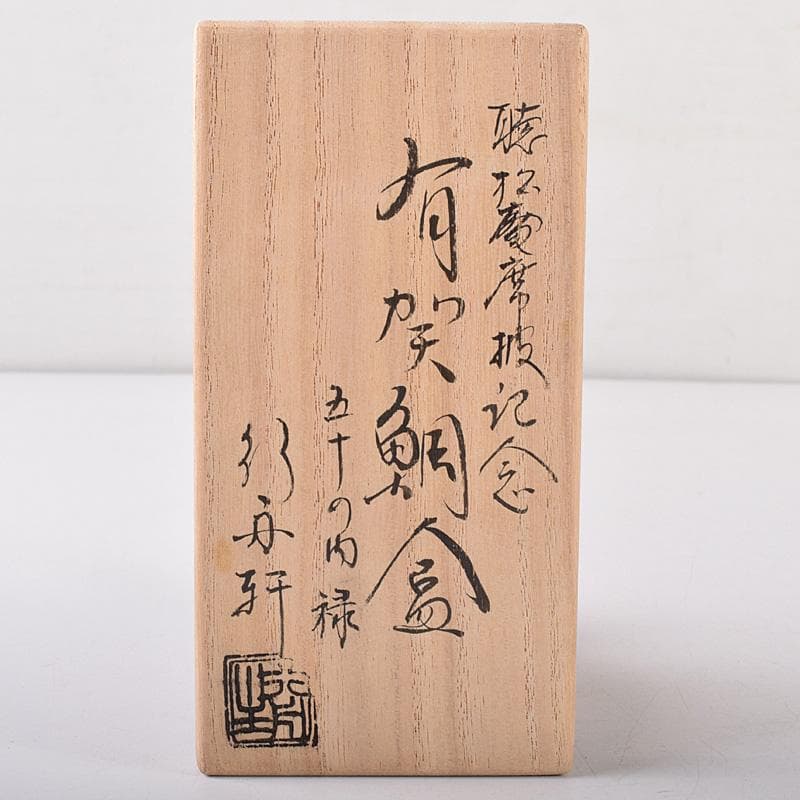 聴松庵席披記念
有賀鯛盒
五十の内 禄
行舟軒